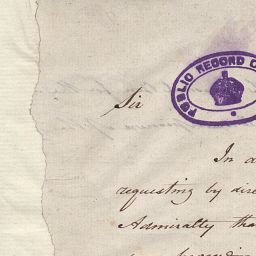 PUBLIC RECORD O
Sir
In a
requesting by dire
Admiralty tha